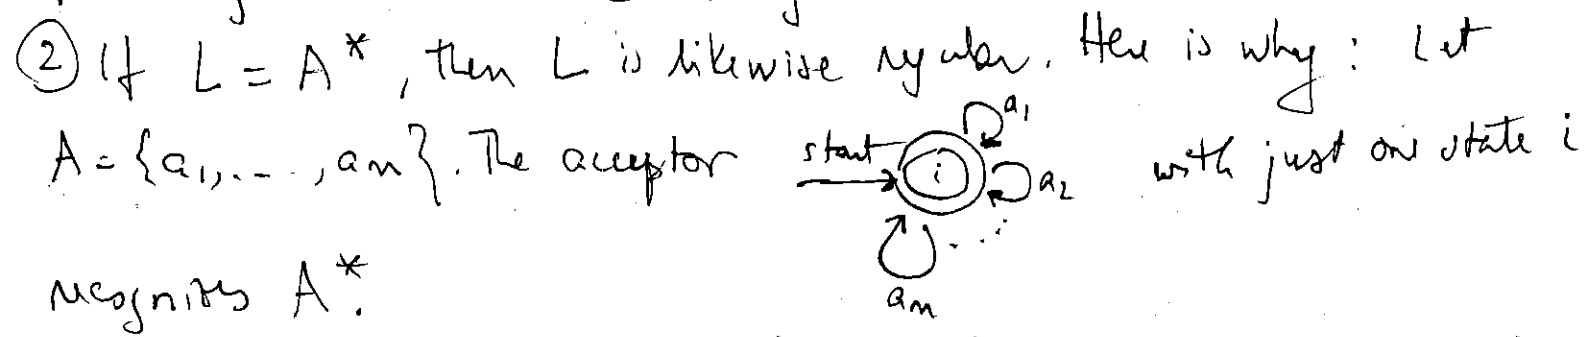 ② If L = A*, then L is likewise regular. Here is why: Let
A = {a₁,..., aₙ}. The acceptor start i a₁ a₂ ... aₙ with just one state i
recognizes A*.